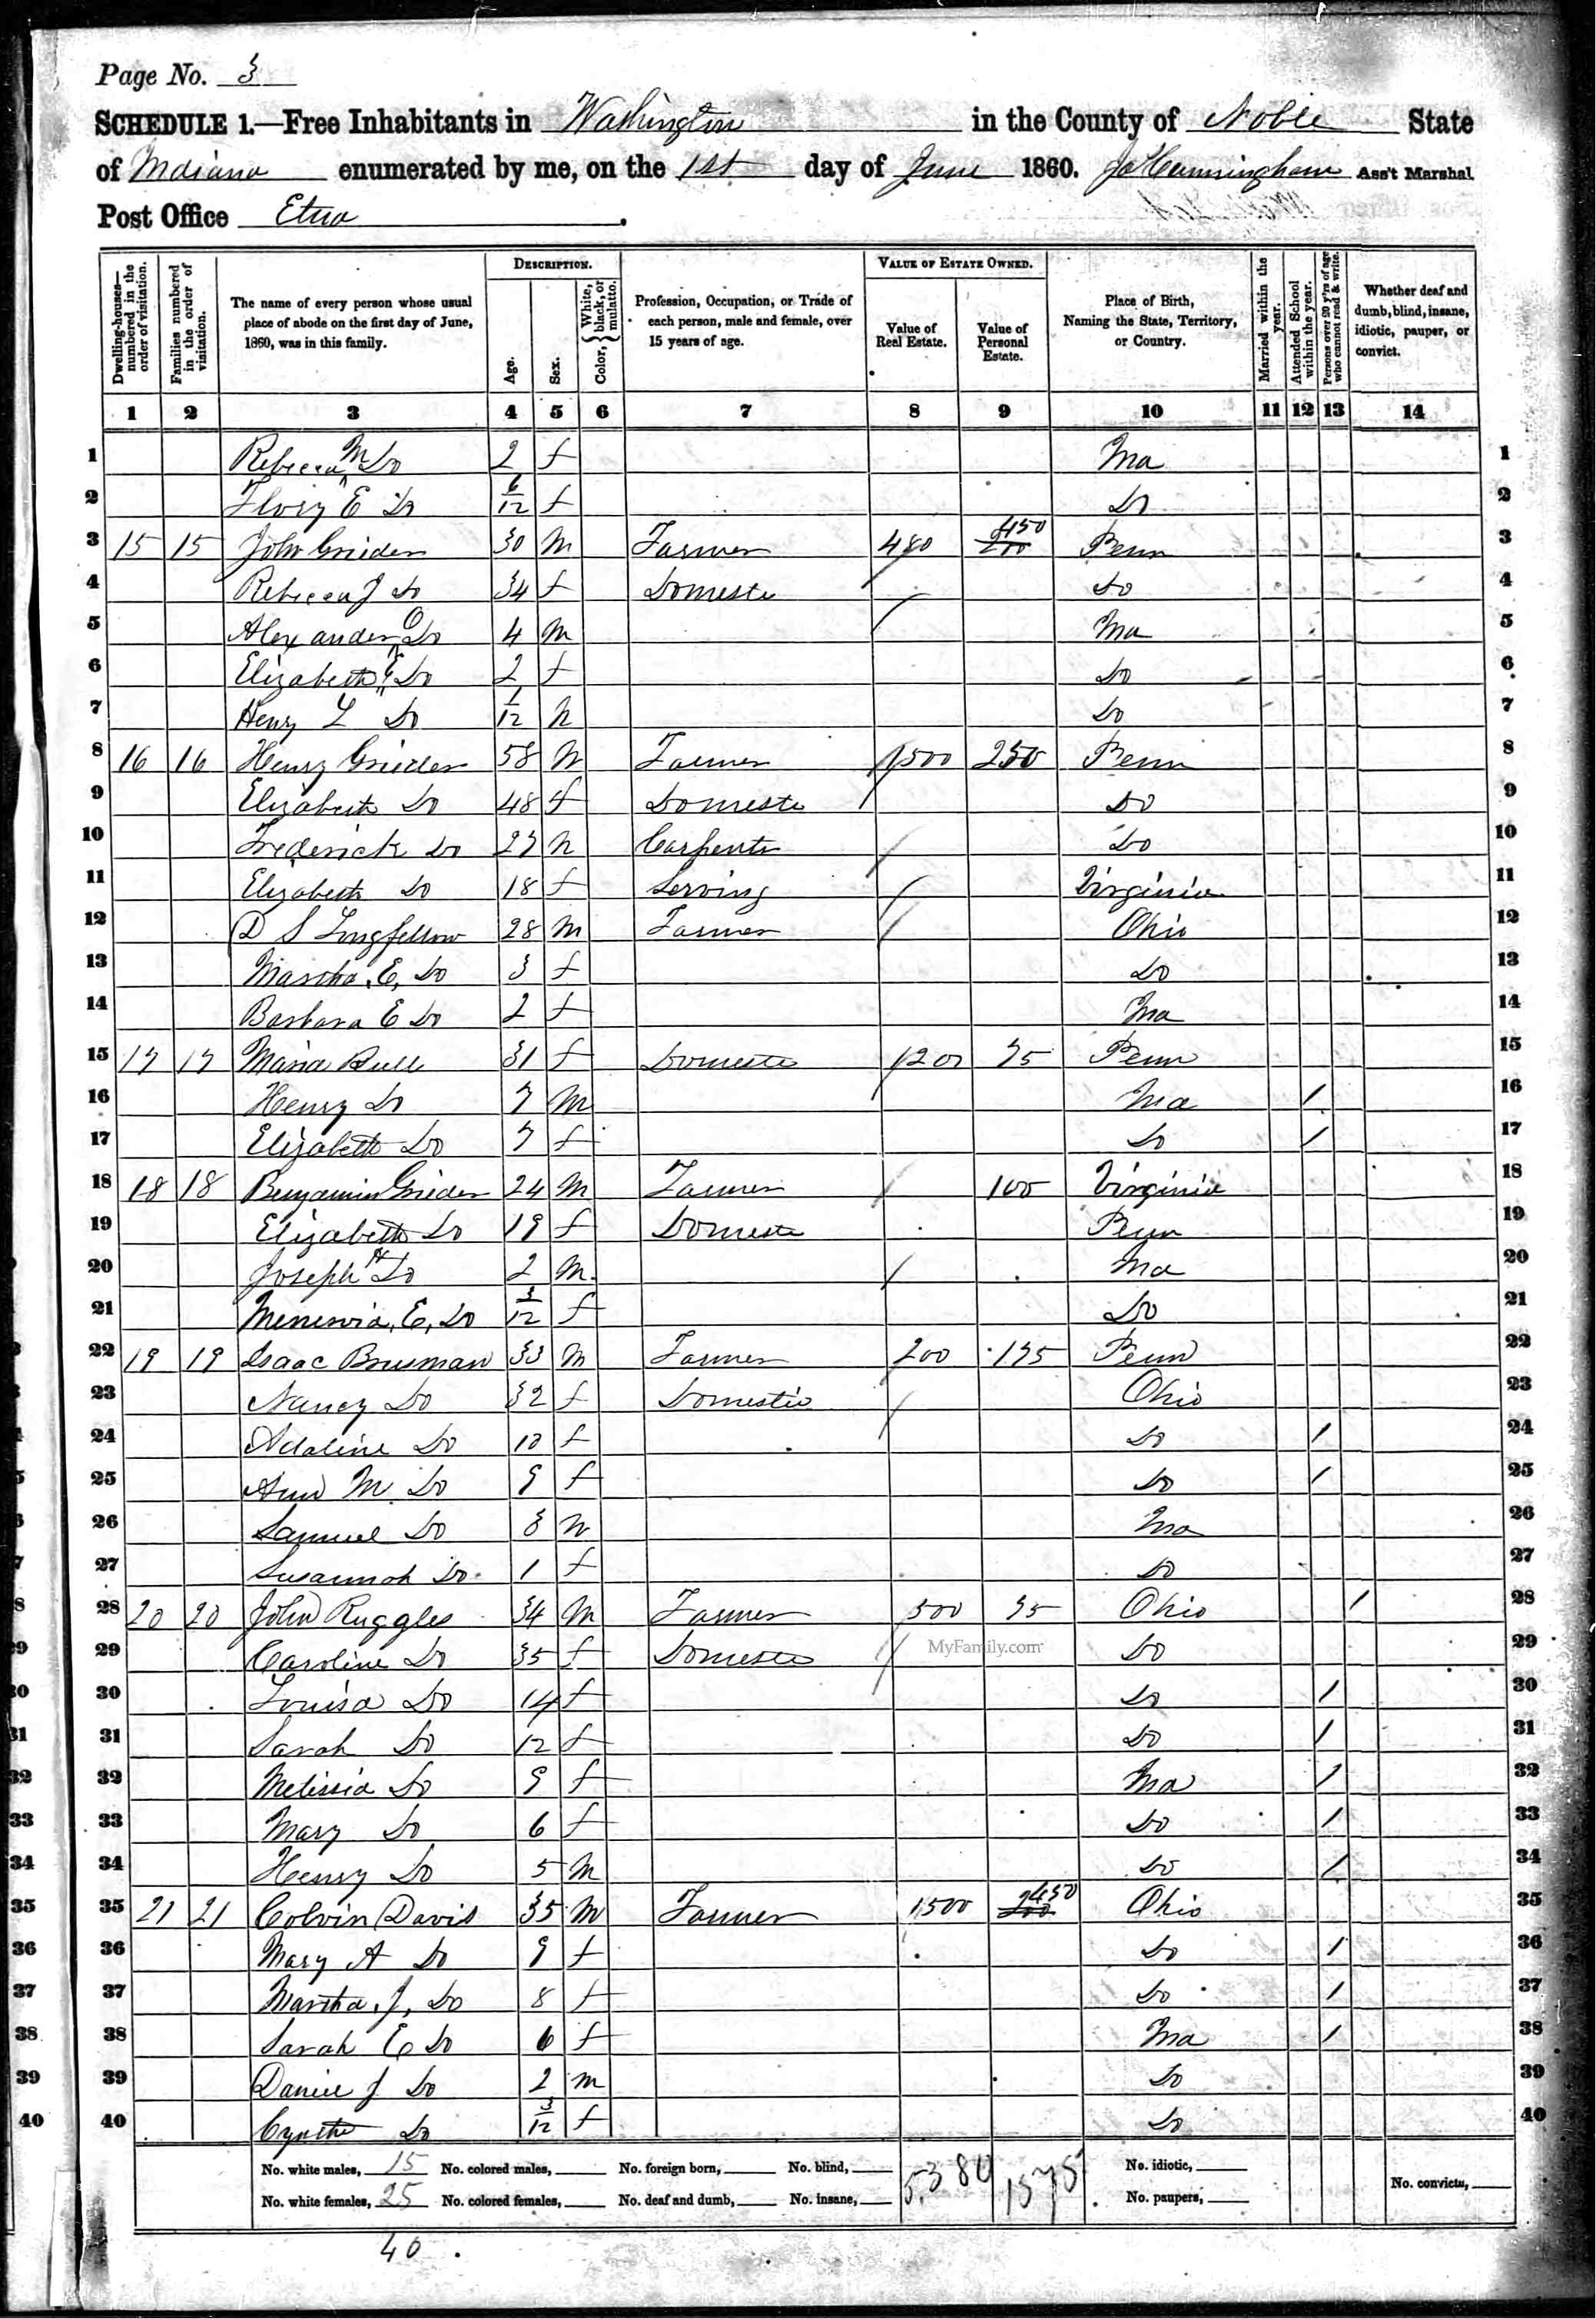 Page No. 3
SCHEDULE 1.—Free Inhabitants in Washington in the County of Noble State
of Indiana enumerated by me, on the 1st day of June 1860. Ass't Marshal
Post Office Etna .
DESCRIPTION. VALUE OF ESTATE OWNED.
Dwelling-houses—numbered in the order of visitation. Families numbered in the order of visitation. The name of every person whose usual place of abode on the first day of June, 1860, was in this family. Age. Sex. Color, { White, black, or mulatto. Profession, Occupation, or Trade of each person, male and female, over 15 years of age. Value of Real Estate. Value of Personal Estate. Place of Birth, Naming the State, Territory, or Country. Married within the year. Attended School within the year. Persons over 20 y'rs of age who cannot read & write. Whether deaf and dumb, blind, insane, idiotic, pauper, or convict.
1 2 3 4 5 6 7 8 9 10 11 12 13 14
1 Rebecca M Do 2 f Ina 1
2 E Do 6/12 f Do 2
3 15 15 John Grieder 30 M Farmer 480 450 Penn 3
4 Rebecca J Do 34 f Domestc Do 4
5 Alexander O Do 4 M Ina 5
6 Elizabeth E Do 2 f Do 6
7 Henry L Do 1/12 M Do 7
8 16 16 Henry Grieder 58 M Farmer 1500 250 Penn 8
9 Elizabeth Do 48 f Domestc Do 9
10 Frederick Do 27 M Carpentr Do 10
11 Elizabeth Do 18 f Serving Virginia 11
12 D S Longfellow 28 M Farmer Ohio 12
13 Martha, E, Do 3 f Do 13
14 Barbara E Do 2 f Ina 14
15 17 17 Maria Bull 31 f Domestc 1200 75 Penn 15
16 Henry Do 7 M Ina / 16
17 Elizabeth Do 7 f Do / 17
18 18 18 Benjamin Grieder 24 M Farmer 100 Virginia 18
19 Elizabeth Do 19 f Domestc Penn 19
20 Joseph H Do 2 M Ina 20
21 E, Do 3/12 f Do 21
22 19 19 Isaac Brusman 33 M Farmer 200 175 Penn 22
23 Nancy Do 32 f Domestic Ohio 23
24 Adaline Do 10 f Do / 24
25 Ann M Do 9 f Do / 25
26 Samuel Do 3 M Ina 26
27 Susannah Do 1 f Do 27
28 20 20 John Ruggles 34 M Farmer 500 75 Ohio / 28
29 Caroline Do 35 f Domestc MyFamily.com Do 29
30 Louisa Do 14 f Do / 30
31 Sarah Do 12 f Do / 31
32 Melissia Do 9 f Ina / 32
33 Mary Do 6 f Do / 33
34 Henry Do 5 M Do / 34
35 21 21 Colvin Davis 35 M Farmer 1500 450 Ohio 35
36 Mary A Do 9 f Do / 36
37 Martha, J, Do 8 f Do / 37
38 Sarah E Do 6 f Ina / 38
39 Daniel J Do 2 M Do 39
40 Cyntha Do 3/12 f Do 40
No. white males, 15 No. colored males, No. foreign born, No. blind, 5380 1575 No. idiotic,
No. white females, 25 No. colored females, No. deaf and dumb, No. insane, No. paupers, No. convicts,
40